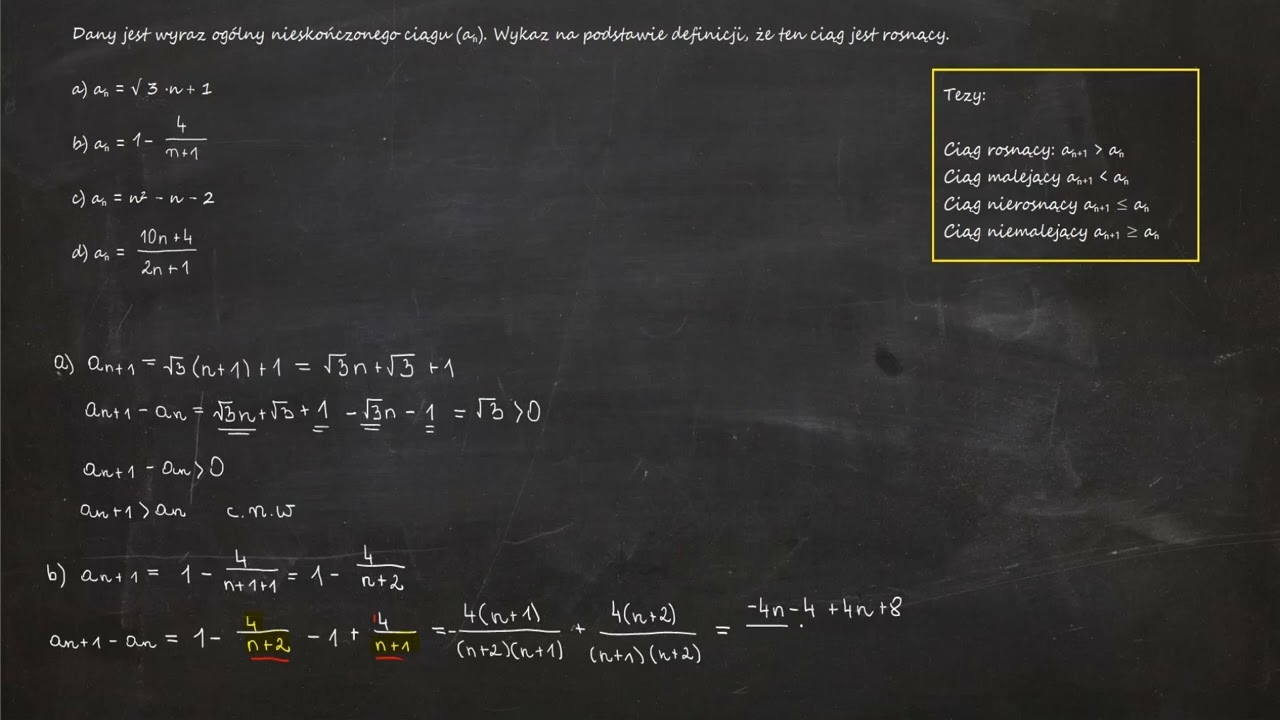 Dany jest wyraz ogólny nieskończonego ciągu (aₙ). Wykaz na podstawie definicji, że ten ciąg jest rosnący.
a) aₙ = √3 ·n + 1
b) aₙ = 1 - 4/(n+1)
c) aₙ = n² - n - 2
d) aₙ = (10n+4)/(2n+1)
Tezy:
Ciąg rosnący: aₙ₊₁ > aₙ
Ciąg malejący aₙ₊₁ < aₙ
Ciąg nierosnący aₙ₊₁ ≤ aₙ
Ciąg niemalejący aₙ₊₁ ≥ aₙ
a) aₙ₊₁ = √3(n+1)+1 = √3n+√3 +1
aₙ₊₁ - aₙ = √3n+√3+1 -√3n-1 = √3 >0
aₙ₊₁ - aₙ>0
aₙ₊₁ > aₙ c.n.w
b) aₙ₊₁ = 1 - 4/(n+1+1) = 1 - 4/(n+2)
aₙ₊₁ - aₙ = 1 - 4/(n+2) - 1 + 4/(n+1) = - 4(n+1)/((n+2)(n+1)) + 4(n+2)/((n+1)(n+2)) = -4n-4+4n+8